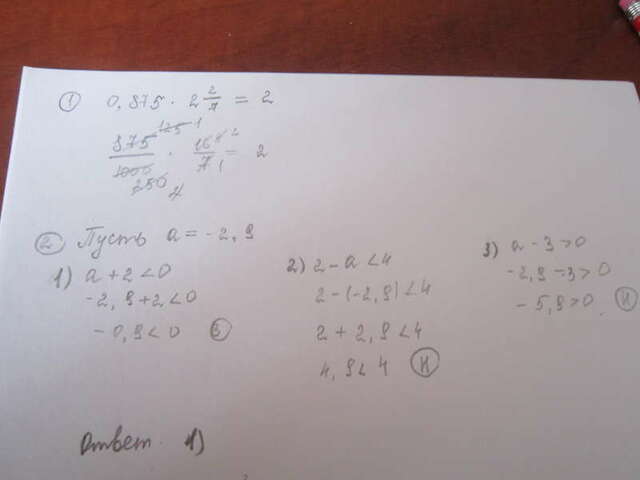 ① 0,875 · 2 2/7 = 2
875/1000 · 16/7 = 2
125 1
250 4
② Пусть a = -2,9
1) a + 2 < 0
-2,9 + 2 < 0
-0,9 < 0
2) 2 - a < 4
2 - (-2,9) < 4
2 + 2,9 < 4
4,9 < 4 Н
3) a - 3 > 0
-2,9 - 3 > 0
-5,9 > 0. Н
Ответ. 1)